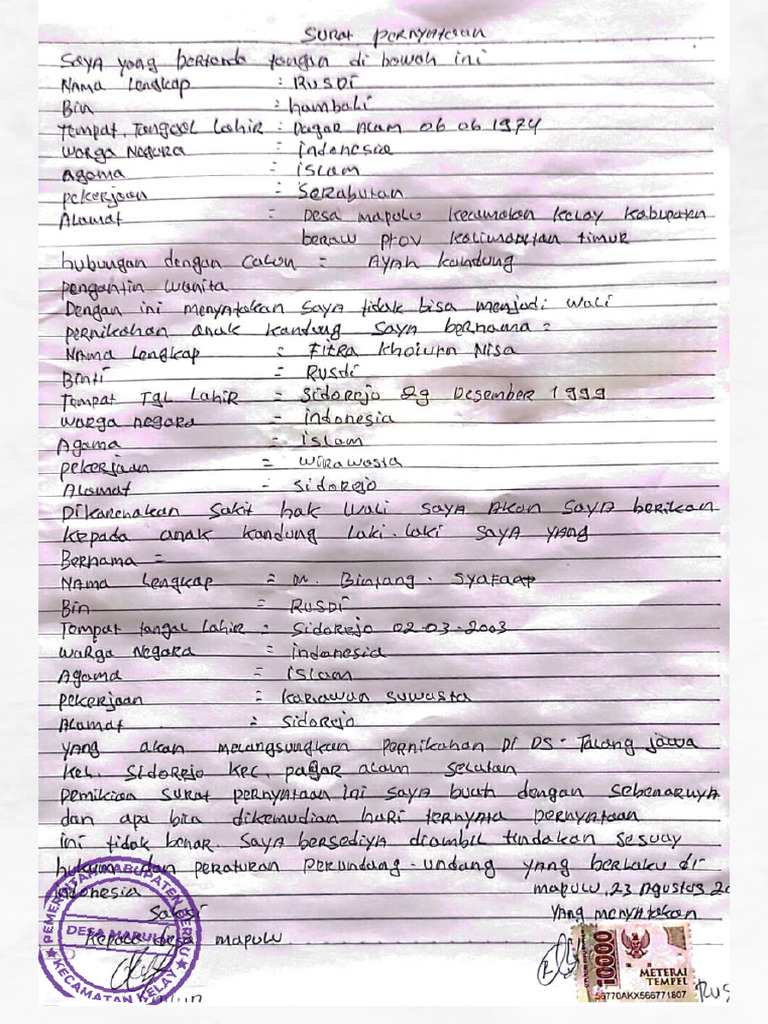 SURAT PERNYATAAN
Saya yang bertanda tangan di bawah ini
Nama Lengkap : RUSDI
Bin : hambali
Tempat, Tanggal Lahir : Pagar Alam 06 06 1974
Warga Negara : indonesia
Agama : islam
pekerjaan : Serabutan
Alamat : Desa mapulu kecamatan kelay kabupaten
berau prov kalimantan timur
hubungan dengan calon : AYAH kandung
pengantin wanita
Dengan ini menyatakan saya tidak bisa menjadi wali
pernikahan anak kandung saya bernama :
Nama Lengkap : Fitra khoiurn Nisa
Binti : Rusdi
Tempat TgL Lahir : Sidorejo 29 Desember 1999
warga negara : indonesia
Agama : islam
pekerjaan : wirawasta
Alamat : Sidorejo
Dikarenakan sakit hak wali saya akan saya berikan
kepada anak kandung laki-laki saya yang
Bernama :
Nama Lengkap : M. Bintang. Syafaat
Bin : RUSDI
Tempat tangal Lahir : Sidorejo 02-03-2003
waRga Negara : indonesia
Agama : islam
pekerjaan : kariawan suwasta
Alamat : Sidorejo
yang akan melangsungkan pernikahan Di DS-Talang jawa
kel. Sidorejo kec, pagar alam selatan
Demikian surat pernyataan ini saya buat dengan sebenarnya
dan apa bila dikemudian hari ternyata pernyataan
ini tidak benar. saya bersediya diambil tindakan sesuay
hukum dan peraturan perundang-undang yang berlaku di
indonesia
mapulu, 23 Agustus 20
Saksi
yang menyatakan
Kepala desa mapulu
PEMERINTAH KABUPATEN BERAU
DESA MAPULU
KECAMATAN KELAY
10000
METERAI
TEMPEL
56770AKX566771807
RUS